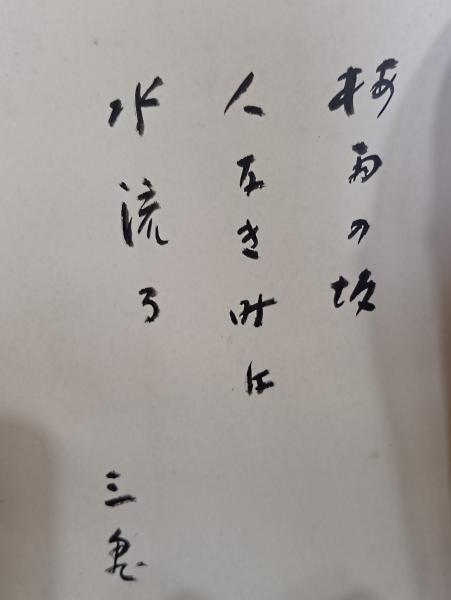 梅雨の坂
人なき時は
水流る
三鬼